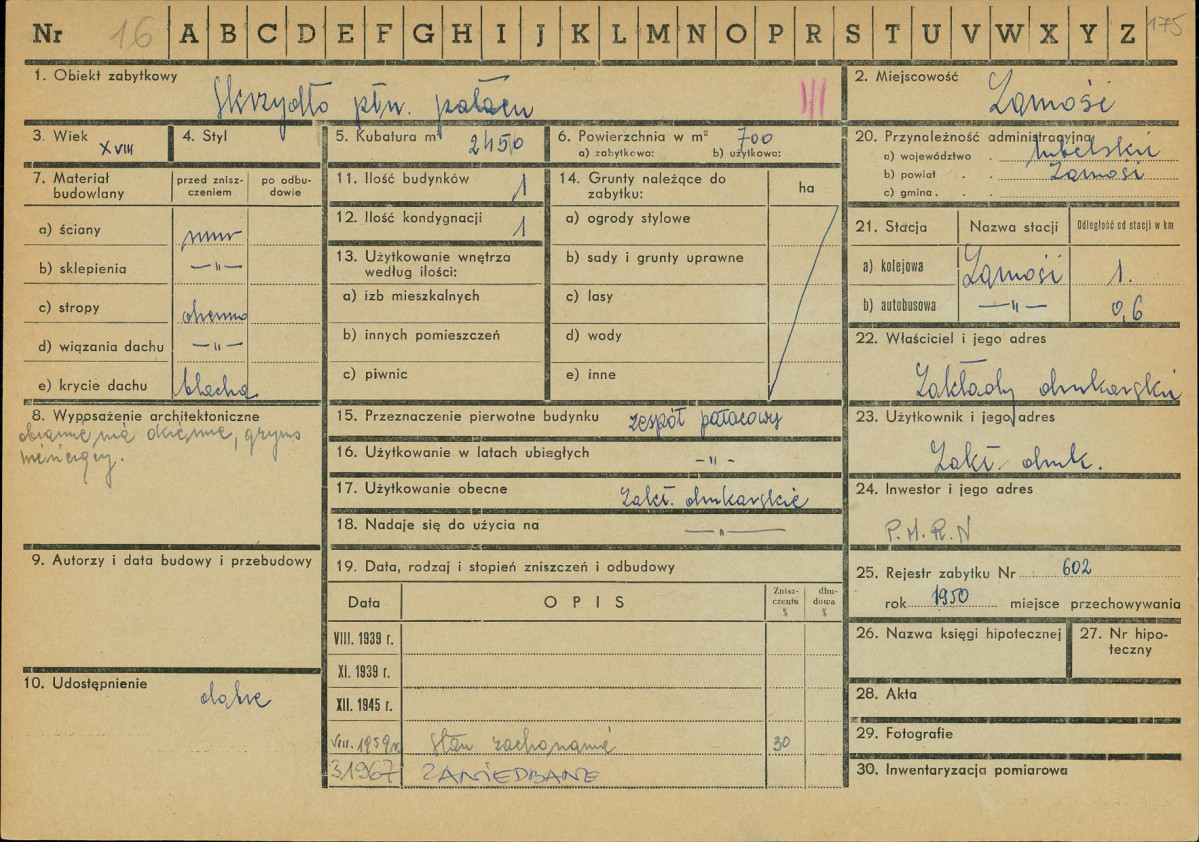 Nr 16 A B C D E F G H I J K L M N O P R S T U V W X Y Z 175
1. Obiekt zabytkowy
Skrzydło płn. pałacu III
2. Miejscowość
Zamość
3. Wiek
XVIII
4. Styl
5. Kubatura m³ 2450
6. Powierzchnia w m² 700
a) zabytkowa: b) użytkowa:
20. Przynależność administracyjna
a) województwo . lubelskie
b) powiat . . Zamość
c) gmina . . .
7. Materiał budowlany
przed znisz-
czeniem
po odbu-
dowie
a) ściany mur
b) sklepienia —"—
c) stropy drewno
d) wiązania dachu —"—
e) krycie dachu blacha
11. Ilość budynków 1
12. Ilość kondygnacji 1
13. Użytkowanie wnętrza
według ilości:
a) izb mieszkalnych
b) innych pomieszczeń
c) piwnic
14. Grunty należące do
zabytku:
ha
a) ogrody stylowe
b) sady i grunty uprawne
c) lasy
d) wody
e) inne
21. Stacja
Nazwa stacji
Odległość od stacji w km
a) kolejowa Zamość 1.
b) autobusowa —"— 0,6
22. Właściciel i jego adres
Zakłady drukarskie
8. Wyposażenie architektoniczne
okienne, gzyms
wieńczący.
15. Przeznaczenie pierwotne budynku zespół pałacowy
16. Użytkowanie w latach ubiegłych -"-
17. Użytkowanie obecne Zakł. drukarskie
18. Nadaje się do użycia na —"—
23. Użytkownik i jego adres
Zakł. druk.
24. Inwestor i jego adres
P.M.R.N
9. Autorzy i data budowy i przebudowy
19. Data, rodzaj i stopień zniszczeń i odbudowy
Data
OPIS
Znisz-
czeniu
%
dbu-
dowa
%
VIII. 1939 r.
XI. 1939 r.
XII. 1945 r.
VIII. 1959 r. Stan zachowania 30
31967 ZANIEDBANE
10. Udostępnienie
dobre
25. Rejestr zabytku Nr 602
rok 1950 miejsce przechowywania
26. Nazwa księgi hipotecznej
27. Nr hipo-
teczny
28. Akta
29. Fotografie
30. Inwentaryzacja pomiarowa